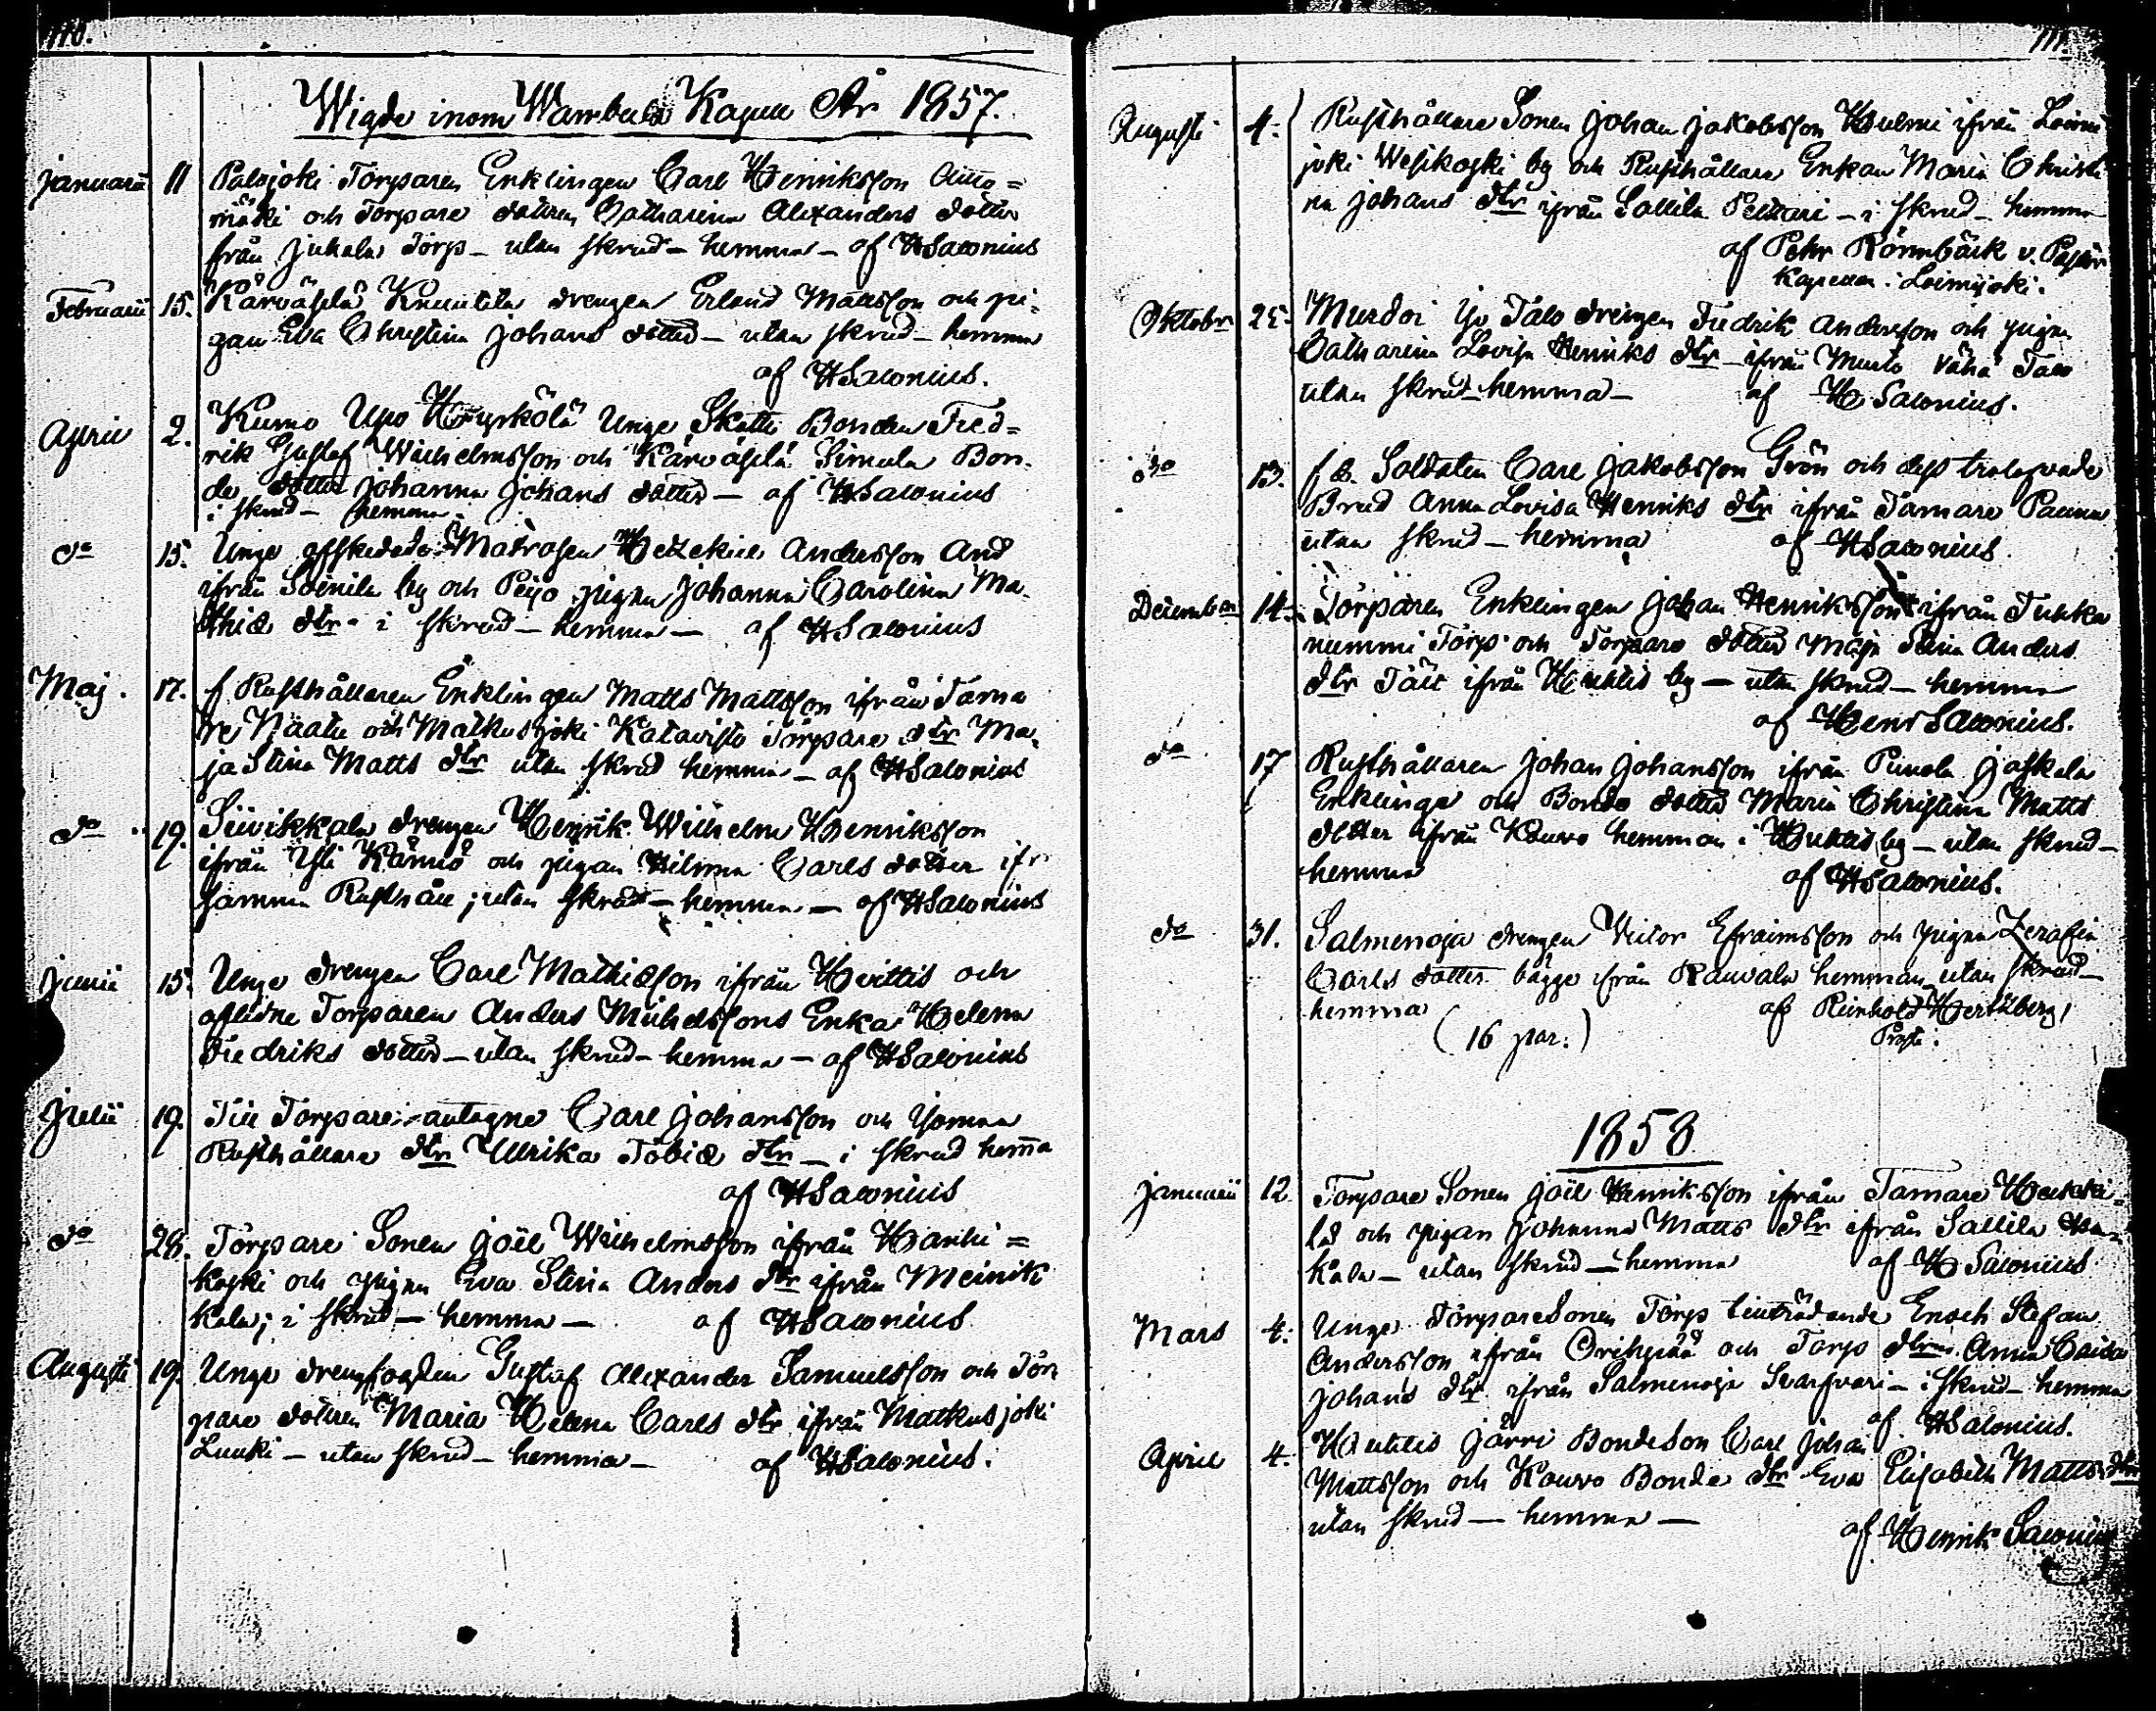 110.
Wigde inom Wambula Kapell År 1857.
Januarii 11 Palojoki Torparen Enklingen Carl Henriksson Aitto=
mäki och Torpare dottren Catharina Alexanders dotter
från Jukala Torp - utan skrud - hemma - af HSalonius
Februarii 15. Kärväselä Knuutila drengen Erland Mattsson och pi-
gan Eva Christina Johans dotter - utan skrud - hemma
af HSalonius.
April 2. Kumo Ugo Hyrkölä Unge Skatte Bonden Fred=
rik Gustaf Wilhelmsson och Kärväselä Simula Bon-
de dotter Johanna Johans dotter - af HSalonius
i skrud - hemma
do 15. Unge afskedade Matrosen Hezekiel Andersson And
ifrån Soinila by och Peijo pigan Johanna Carolina Ma-
thiæ dtr - i skrud - hemma - af HSalonius
Maj. 17. f Rusthållaren Enklingen Matts Mattsson ifrån Tama
re Naatu och Matkusjoki Katavisto Torpare dtr Ma-
ja Stina Matts dtr utan skrud hemma - af HSalonius
do 19. Siivikkala drengen Henrik Wilhelm Henriksson
ifrån Yli Kännö och pigan Hilma Carls dotter ifr
samma Rusthåll; utan skrud - hemma - af HSalonius
Junii 15. Unge drengen Carl Mathiæson ifrån Hvittis och
aflidne Torparen Anders Michelssons Enka Helena
Fredriks dotter - utan skrud - hemma - af HSalonius
Julii 19. Till Torpare antagne Carl Johansson och
Rusthållare dtr Ullrika Tobiæ dtr - i skrud hem̄a
af HSalonius
do 28. Torpare Sonen Joël Wilhelmsson ifrån Hanhi=
koski och pigan Eva Stina Anders dtr ifrån Meinik
kala; i skrud - hemma - af HSalonius
Augusti 19. Unge drengfogden Gustaf Alexander Samuelsson och Tor
pare dottren Maria Helena Carls dtr ifrån Matkusjoki
Luuki - utan skrud - hemma - af HSalonius.
111.
Augusti 4. Rusthållare Sonen Johan Jakobsson Hulmi ifrån Loimi
joki Wesikoski by och Rusthållare Enkan Maria Christi
na Johans dtr ifrån Sallila Pelttari - i skrud - hemma
af Pehr Rönnbäck v. Pastor
Kapellan i Loimijoki.
Oktober 25. Murdoi Iso Talo drengen Fredrik Andersson och pigan
Catharina Lovisa Henriks dtr - ifrån Murto Vähä Talo
utan skrud - hemma - af H Salonius.
do 13. f d. Soldaten Carl Jakobsson Grön och dess trolofvade
Brud Anna Lovisa Henriks dtr ifrån Tamare Paunu
utan skrud - hemma af HSalonius.
December 14. Torparen Enklingen Johan Henriksson ifrån Tuhka
nummi Torp och Torpare dotter Maja Stina Anders
dtr Tält ifrån Huhtis by - utan skrud - hemma
af Henr Salonius.
do 17 Rusthållaren Johan Johansson ifrån Punola Jaskala
Enklinge och Bonde dotter Maria Christina Matts
dotter ifrån Kouvo hemman i Huhtis by - utan skrud -
hemma af HSalonius.
do 31. Salmenoja drengen Victor Efraimsson och pigan Zerafia
Carls dotter bägge ifrån Rauvala hemman utan skrud -
hemma af Reinhold Hertzberg,
(16 par.) Prost.
1858
Januarii 12. Torpare Sonen Joël Henriksson ifrån Tamare Heikki-
lä och pigan Johanna Matts dtr ifrån Sallila
kala - utan skrud - hemma af H Salonius
Mars 4. Unge Torpare Sonen Torp tillträdande Enoch Stefan
Andersson ifrån Orihpää och Torp dtrn Anna Caisa
Johans dtr ifrån Salmenoja Svarfvari - i skrud - hemma
af HSalonius.
April 4. Huhtis Järri Bondeson Carl Johan
Mattsson och Kouvo Bonde dtr Eva Elisabeth Matts dtr
utan skrud - hemma -
af Henrik Salonius